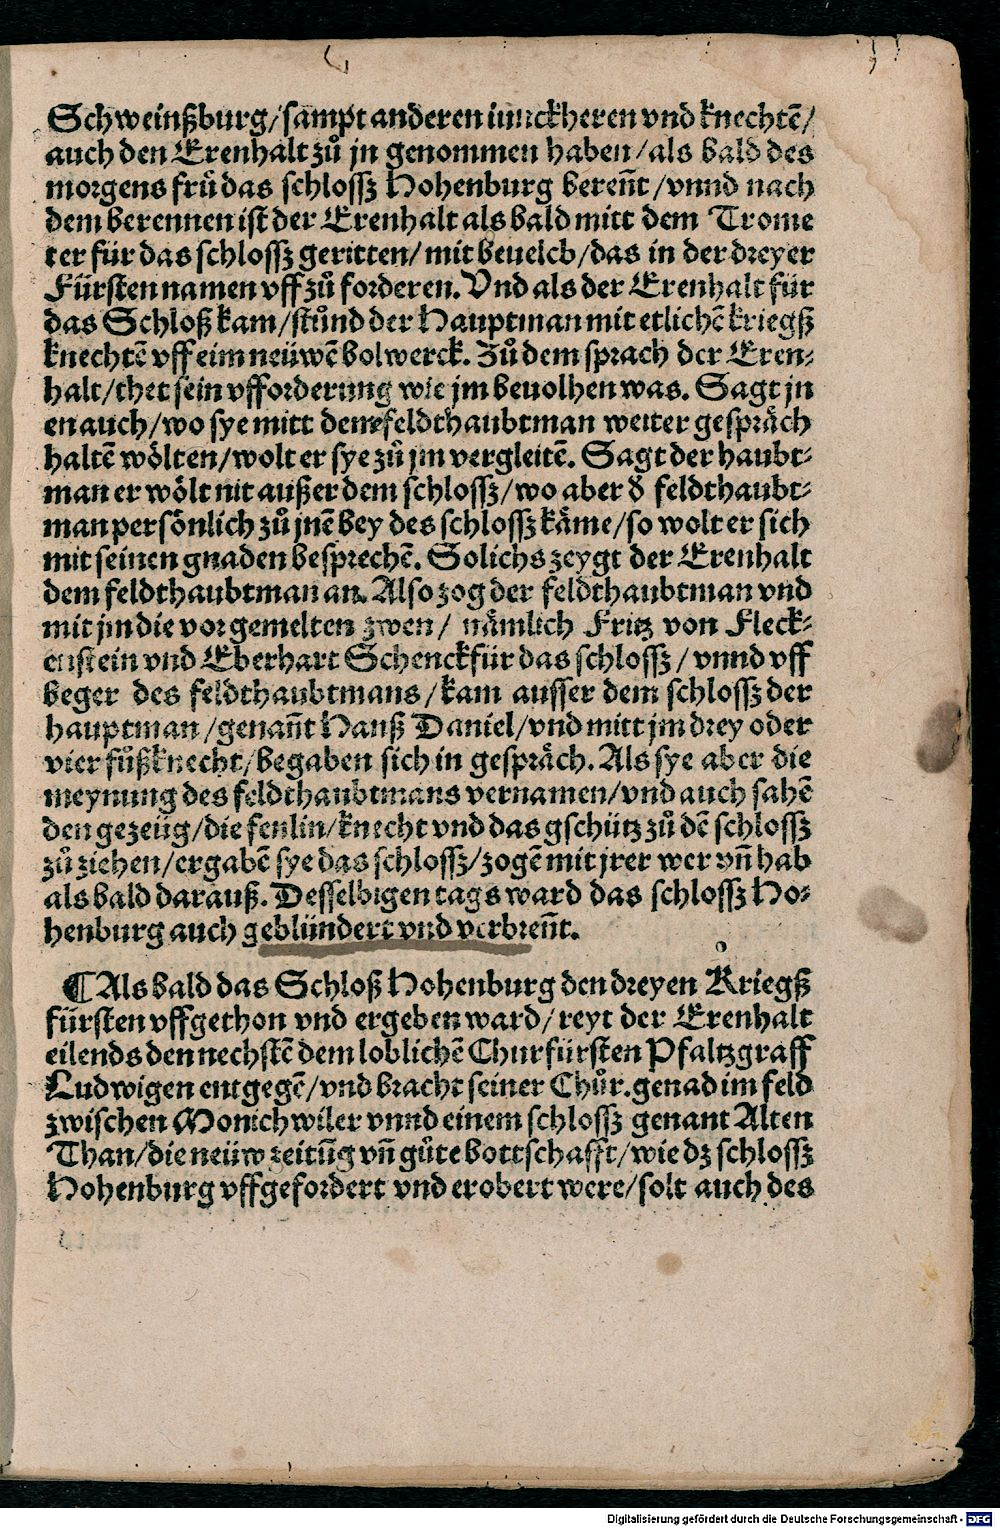 Schweinßburg/sampt anderen iunckheren vnd knechtē/
auch den Erenhalt zů jn genommen haben/als bald des
morgens frů das schlossz Hohenburg bereñt/vnnd nach
dem berennen ist der Erenhalt als bald mitt dem Trome
ter für das schlossz geritten/mit beuelch/das in der dreyer
Fürsten namen vff zů forderen. Vnd als der Erenhalt für
das Schloß kam/stůnd der Hauptman mit etlichē kriegß
knechtē vff eim neüwē bolwerck. Zů dem sprach der Eren⸗
halt/thet sein vfforderung wie jm beuolhen was. Sagt jn
en auch/wo sye mitt dem feldthaubtman weiter gespräch
haltē wölten/wolt er sye zů jm vergleitē. Sagt der haubt⸗
man er wölt nit außer dem schlossz/wo aber d̕ feldthaubt⸗
man persönlich zů jnē bey des schlossz käme/so wolt er sich
mit seinen gnaden besprechē. Solichs zeygt der Erenhalt
dem feldthaubtman an. Also zog der feldthaubtman vnd
mit jm die vor gemelten zwen/ nämlich Fritz von Fleck⸗
enstein vnd Eberhart Schenck für das schlossz/vnnd vff
beger des feldthaubtmans/kam ausser dem schlossz der
hauptman/genañt Hanß Daniel/vnd mitt jm drey oder
vier fůßknecht/begaben sich in gespräch. Als sye aber die
meynung des feldthaubtmans vernamen/vnd auch sahē
den gezeüg/die fenlin/knecht vnd das gschütz zů dē schlossz
zů ziehen/ergabē sye das schlossz/zogē mit jrer wer vñ hab
als bald darauß. Desselbigen tags ward das schlossz Ho⸗
henburg auch geblündert vnd verbreñt.
¶Als bald das Schloß Hohenburg den dreyen Kriegß
fürsten vffgethon vnd ergeben ward/reyt der Erenhalt
eilends den nechstē dem loblichē Churfürsten Pfaltzgraff
Ludwigen entgegē/vnd bracht seiner Chůr. genad im feld
zwischen Monichwiler vnnd einem schlossz genant Alten
Than/die neüw zeitūg vñ gůte bottschafft/wie dz schlossz
Hohenburg vffgefordert vnd erobert were/solt auch des
Digitalisierung gefördert durch die Deutsche Forschungsgemeinschaft - DFG